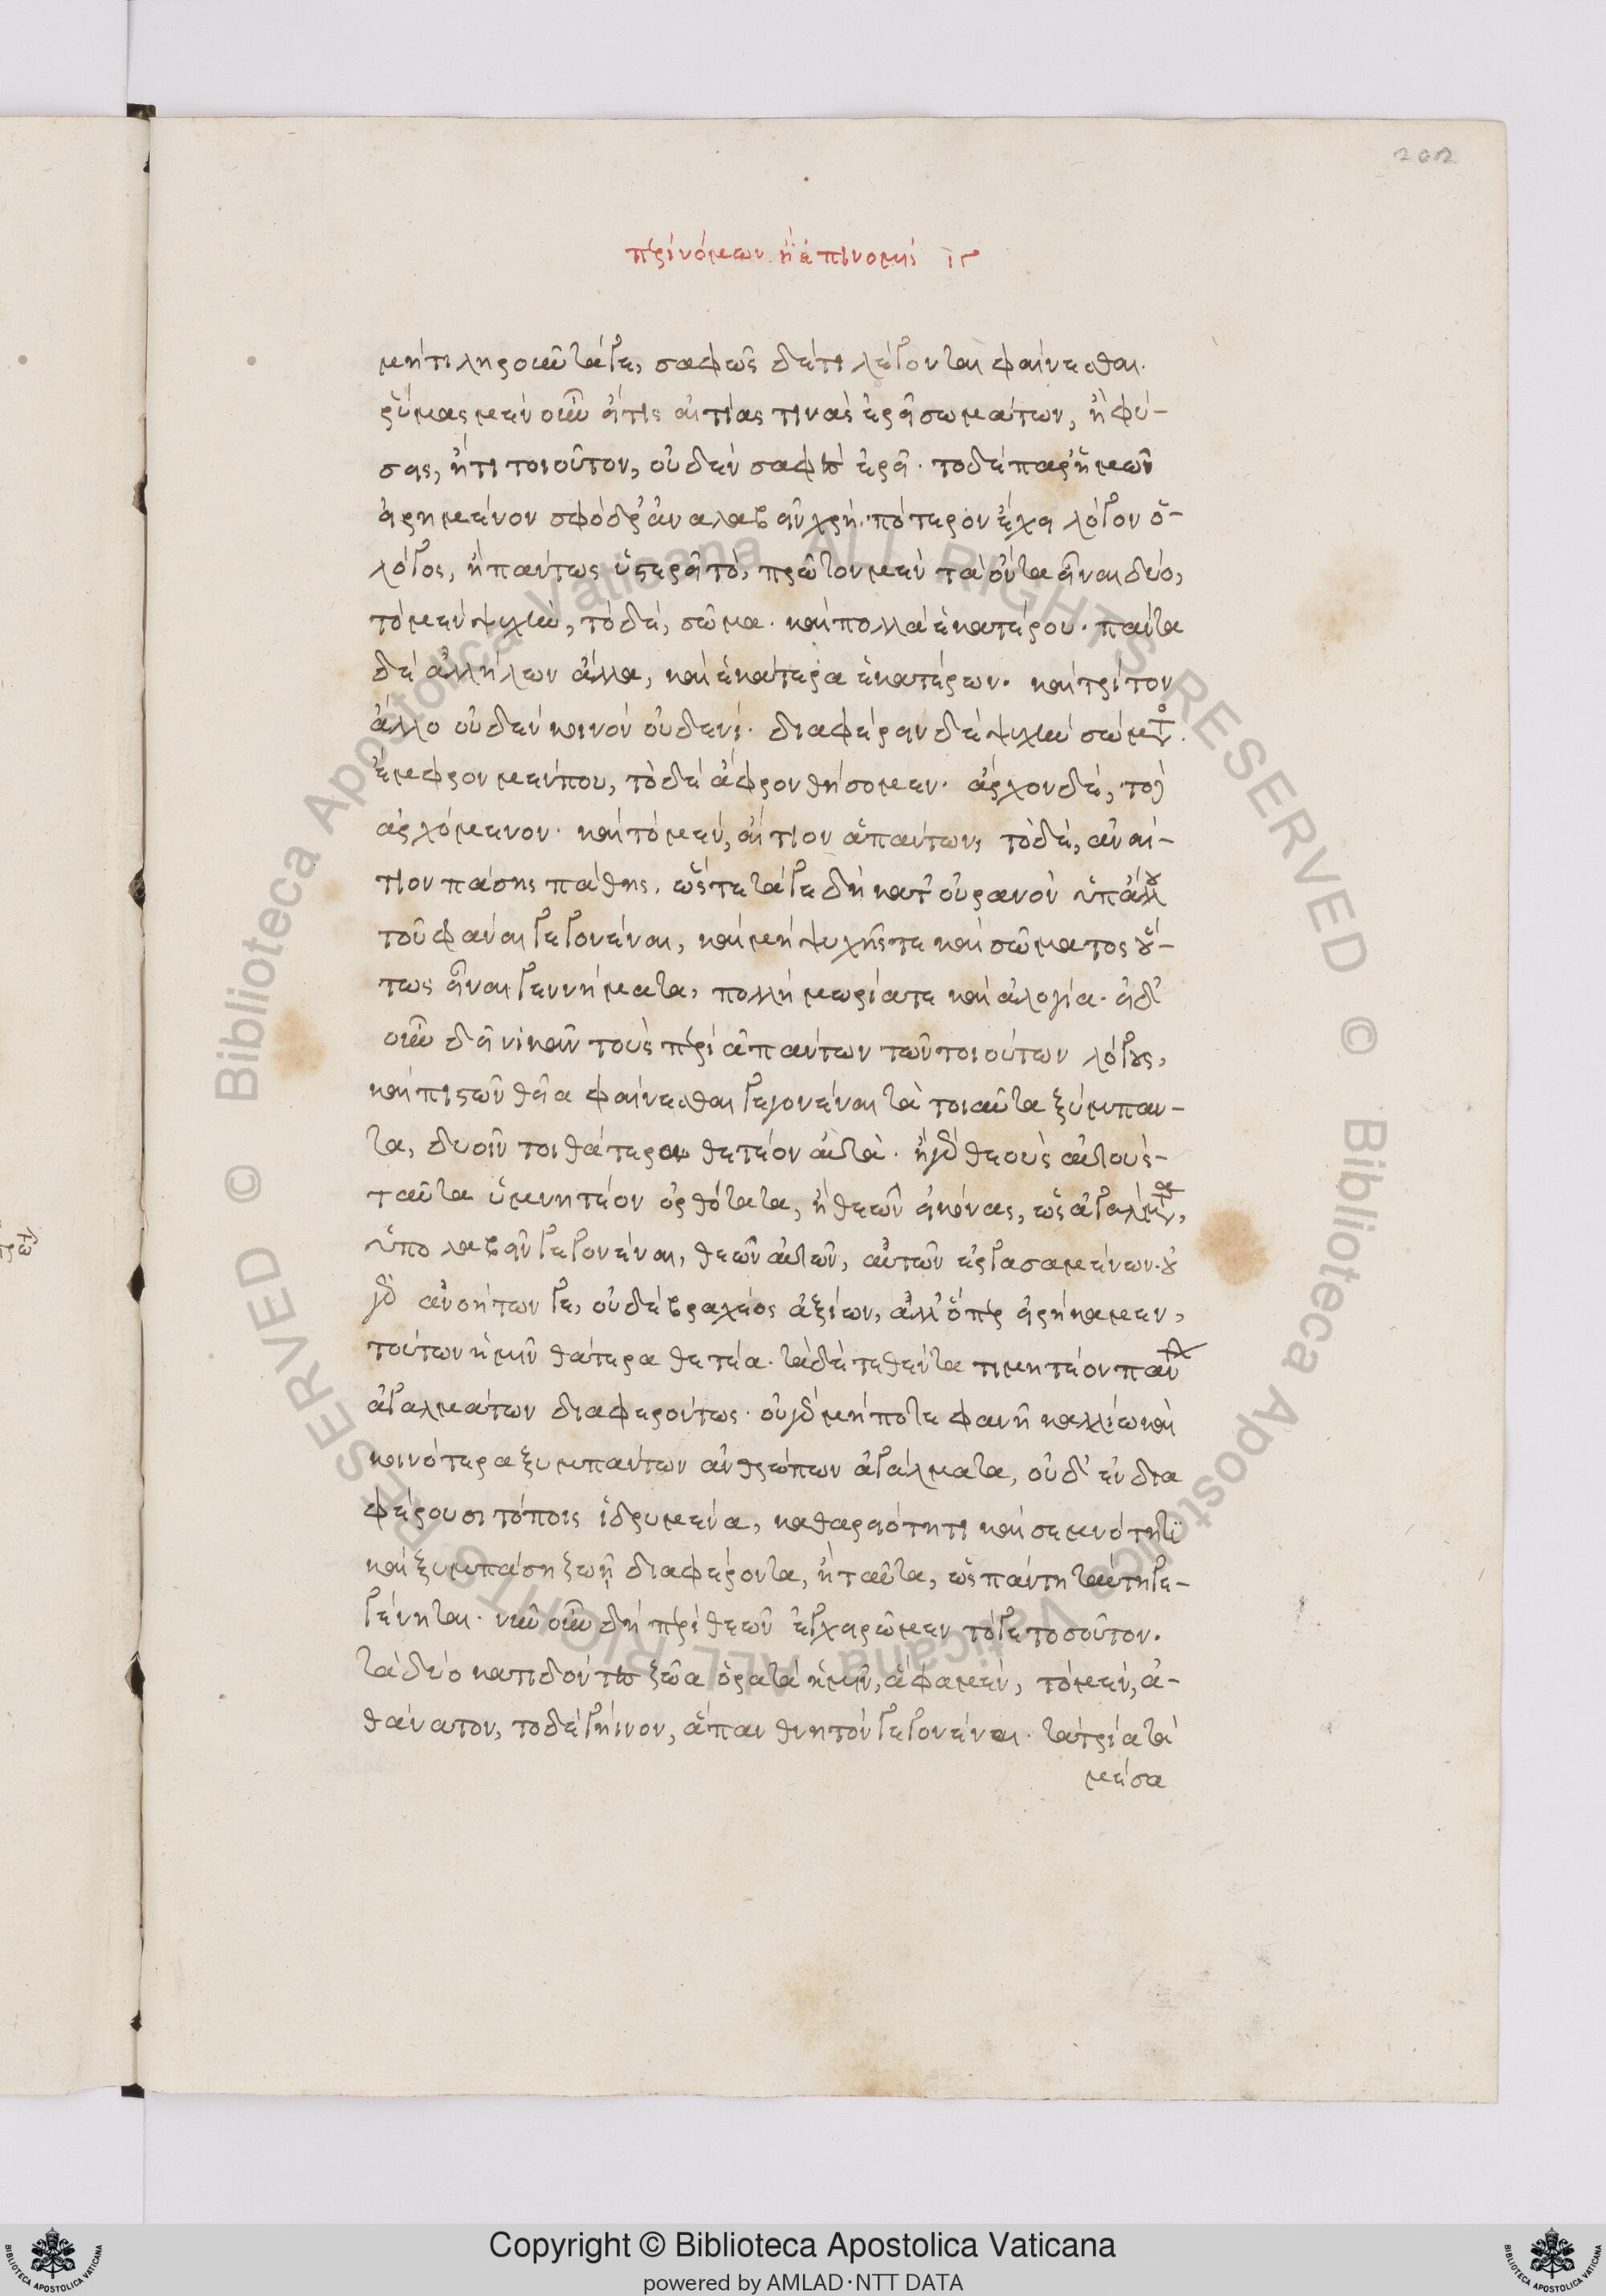 202
περὶ νόμων ἢ ἐπινομὶς ιγ
μή τι ληροῦντά γε, σαφῶς δέ τι λέγοντα φαίνεσθαι.
ῥύμας μὲν οὖν εἴ τις αἰτίας τινὰς ἐρεῖ σωμάτων, ἢ φύ-
σεις, ἤ τι τοιοῦτον, οὐδὲν σαφὲς ἐρεῖ. τὸ δὲ παρ' ἡμῶν
εἰρημένον σφόδρ' ἀναλαβεῖν χρή. πότερον ἔχει λόγον ὁ
λόγος, ἢ πάντως ὑστερεῖ τὸ, πρῶτον μὲν τὰ ὄντα εἶναι δύο,
τὸ μὲν ψυχὴν, τὸ δὲ, σῶμα. καὶ πολλὰ ἑκατέρου. πάντα
δὲ ἀλλήλων ἄλλα, καὶ ἑκάτερα ἑκατέρων. καὶ τρίτον
ἄλλο οὐδὲν κοινὸν οὐδενί. διαφέρειν δὲ ψυχὴν σώματος.
ἔμφρον μέν που, τὸ δὲ ἄφρον θήσομεν. ἄρχον δὲ, τὸ δὲ
ἀρχόμενον. καὶ τὸ μὲν, αἴτιον ἁπάντων, τὸ δὲ, ἀναί-
τιον πάσης πάθης. ὥστε τά γε δὴ κατ' οὐρανὸν ὑπ' ἄλλου
του φάναι γεγονέναι, καὶ μὴ ψυχῆς τε καὶ σώματος οὕ-
τως εἶναι γεννήματα, πολλὴ μωρία τε καὶ ἀλογία. εἰ δ'
οὖν δεῖ νικᾶν τοὺς περὶ ἁπάντων τῶν τοιούτων λόγους,
καὶ πιστῶν θεῖα φαίνεσθαι γεγονέναι τὰ τοιαῦτα ξύμπαν-
τα, δυοῖν τοι θάτερον θετέον αὐτά. ἢ γὰρ θεοὺς αὐτοὺς
ταῦτα ὑμνητέον ὀρθότατα, ἢ θεῶν εἰκόνας, ὡς ἀγάλματα,
ὑπολαβεῖν γεγονέναι, θεῶν αὐτῶν, αὐτῶν ἐργασαμένων. οὐ
γὰρ ἀνοήτων γε, οὐδὲ βραχέος ἀξίων, ἀλλ' ὅπερ εἰρήκαμεν,
τούτων ἡμῖν θάτερα θετέα. τὰ δὲ τεθέντα τιμητέον πάντων
ἀγαλμάτων διαφερόντως. οὐ γὰρ μήποτε φανῇ καλλίω καὶ
κοινότερα ξυμπάντων ἀνθρώπων ἀγάλματα, οὐδ' ἐν δια
φέρουσι τόποις ἱδρυμένα, καθαρειότητι καὶ σεμνότητι
καὶ ξυμπάσῃ ζωῇ διαφέροντα, ἢ ταῦτα, ὡς πάντη ταύτῃ γε-
γένηται. νῦν οὖν δὴ περὶ θεῶν ἐγχειρῶμεν τό γε τοσοῦτον.
τὰ δύο κατιδόντες ζῶα ὁρατὰ ἡμῖν, ἅ φαμεν, τὸ μὲν, ἀ-
θάνατον, τὸ δὲ γήϊνον, ἅπαν θνητὸν γεγονέναι. τὰ τρία τὰ
μέσα
Copyright © Biblioteca Apostolica Vaticana
powered by AMLAD·NTT DATA